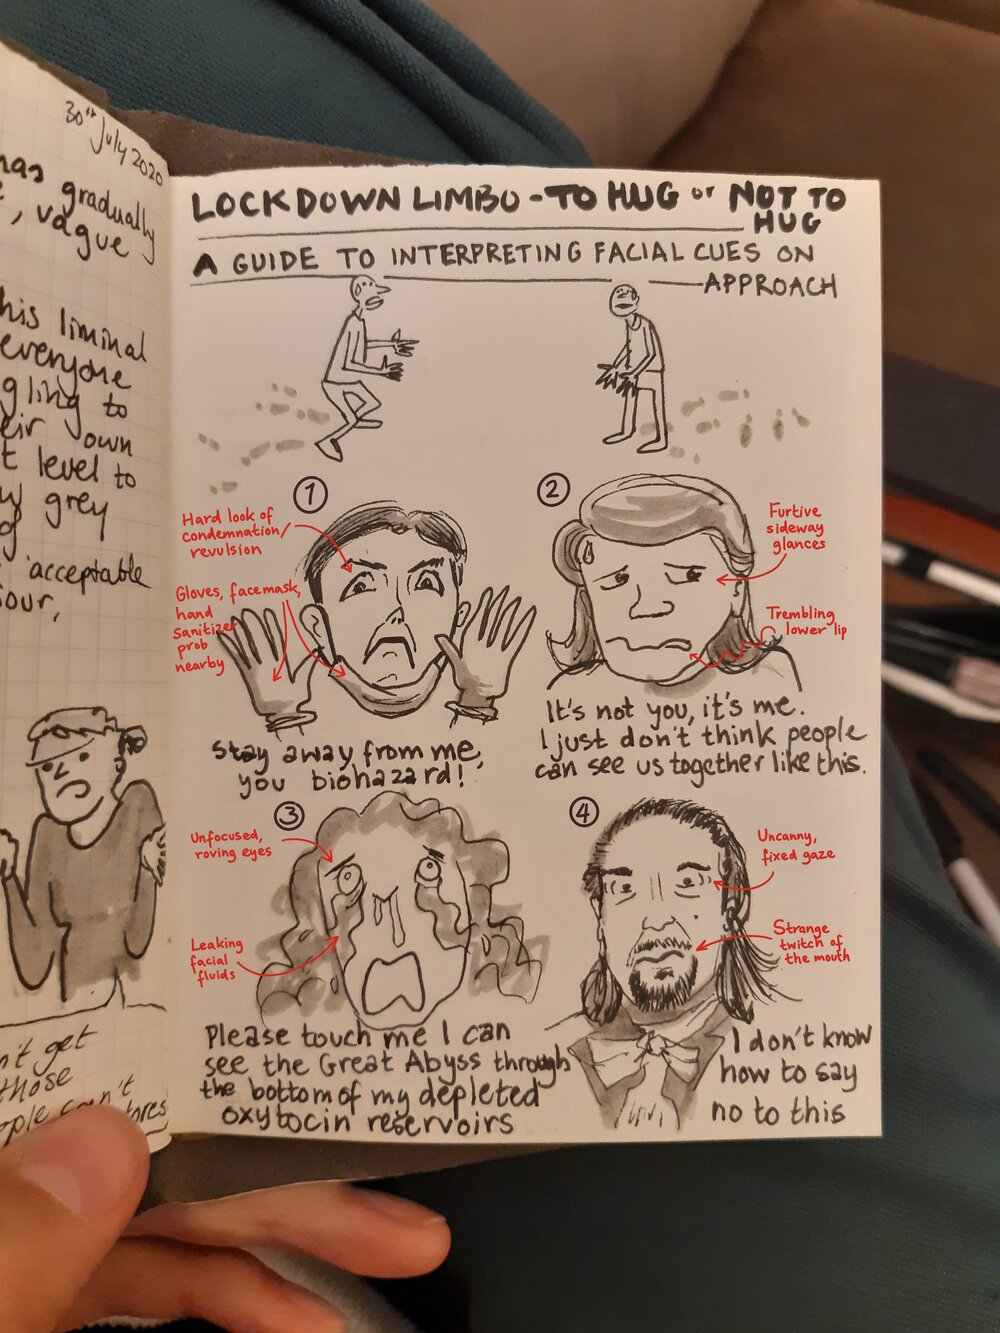 30th July 2020
has gradually
, vague
his liminal
everyone
gling to
eir own
t level to
grey
acceptable
iour,
n't get
those
ople can't
LOCKDOWN LIMBO - TO HUG or NOT TO
HUG
A GUIDE TO INTERPRETING FACIAL CUES ON
APPROACH
1
Hard look of
condemnation/
revulsion
Gloves, facemask,
hand
sanitizer
prob
nearby
stay away from me,
you biohazard!
2
Furtive
sideway
glances
Trembling
lower lip
It's not you, it's me.
I just don't think people
can see us together like this.
3
Unfocused,
roving eyes
Leaking
facial
fluids
Please touch me I can
see the Great Abyss through
the bottom of my depleted
oxytocin reservoirs
4
Uncanny,
fixed gaze
Strange
twitch of
the mouth
I don't know
how to say
no to this